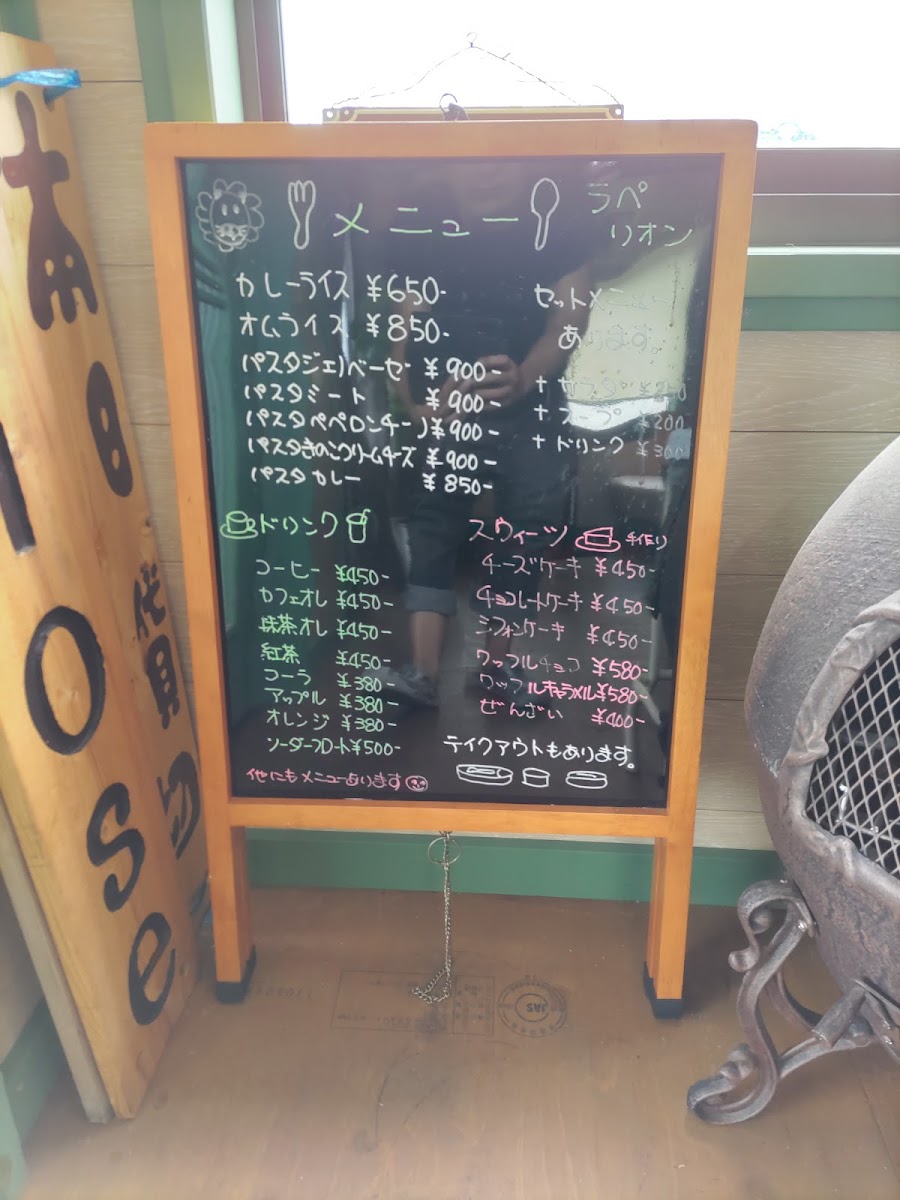 メニュー
ラペ
リオン
カレーライス ¥650-
オムライス ¥850-
パスタジェノベーゼ ¥900-
パスタミート ¥900-
パスタペペロンチーノ ¥900-
パスタきのこクリームチーズ ¥900-
パスタカレー ¥850-
セットメニュー
あります。
+サラダ
+スープ ¥200
+ドリンク ¥300
ドリンク
コーヒー ¥450-
カフェオレ ¥450-
抹茶オレ ¥450-
紅茶 ¥450-
コーラ ¥380-
アップル ¥380-
オレンジ ¥380-
ソーダーフロート ¥500-
他にもメニューあります
スウィーツ 手作り
チーズケーキ ¥450-
チョコレートケーキ ¥450-
シフォンケーキ ¥450-
ワッフルチョコ ¥580-
ワッフルキャラメル ¥580-
ぜんざい ¥400-
テイクアウトもあります。
本日
貸切
close
JAS